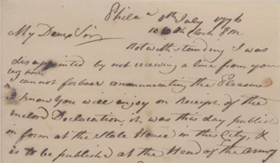 Philaa 8th July 1776
10 o'Clock P.M.
My Dear Sir
Notwithstanding I was
disappointed by not receiving a line from you
I cannot forbear communicating the Pleasure
I know you will enjoy on Receipt of the
inclosed Declaration, it was this day publish'd
in form at the State House in this City, &
is to be published at the Head of the army